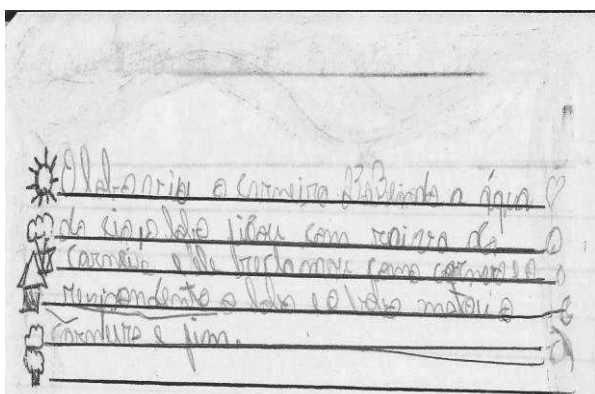 O lobo viu o carneiro bebendo a água
do o lobo ficou com raiva do
carneiro e ele reclamou com o carneiro e o
o lobo e o lobo matou o
e fim.